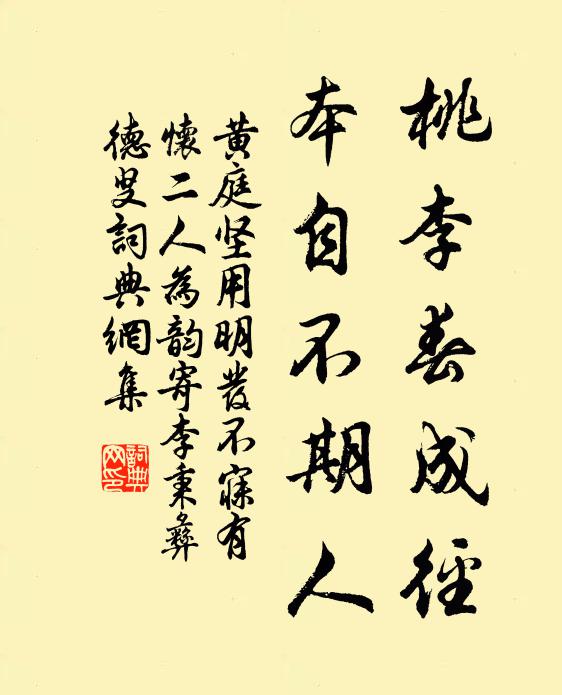 桃李春成徑
本自不期人
黄庭坚用明發不寐有
懷二人為韵寄李秉彝
德叟詞典網集
詞典网印